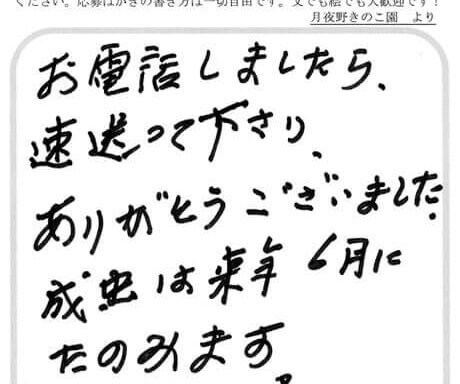 ください。応募はがきの書き方は一切自由です。文でも絵でも大歓迎です！
月夜野きのこ園　より
お電話しましたら、
速送って下さり、
ありがとうございました。
成虫は来年6月に
たのみます